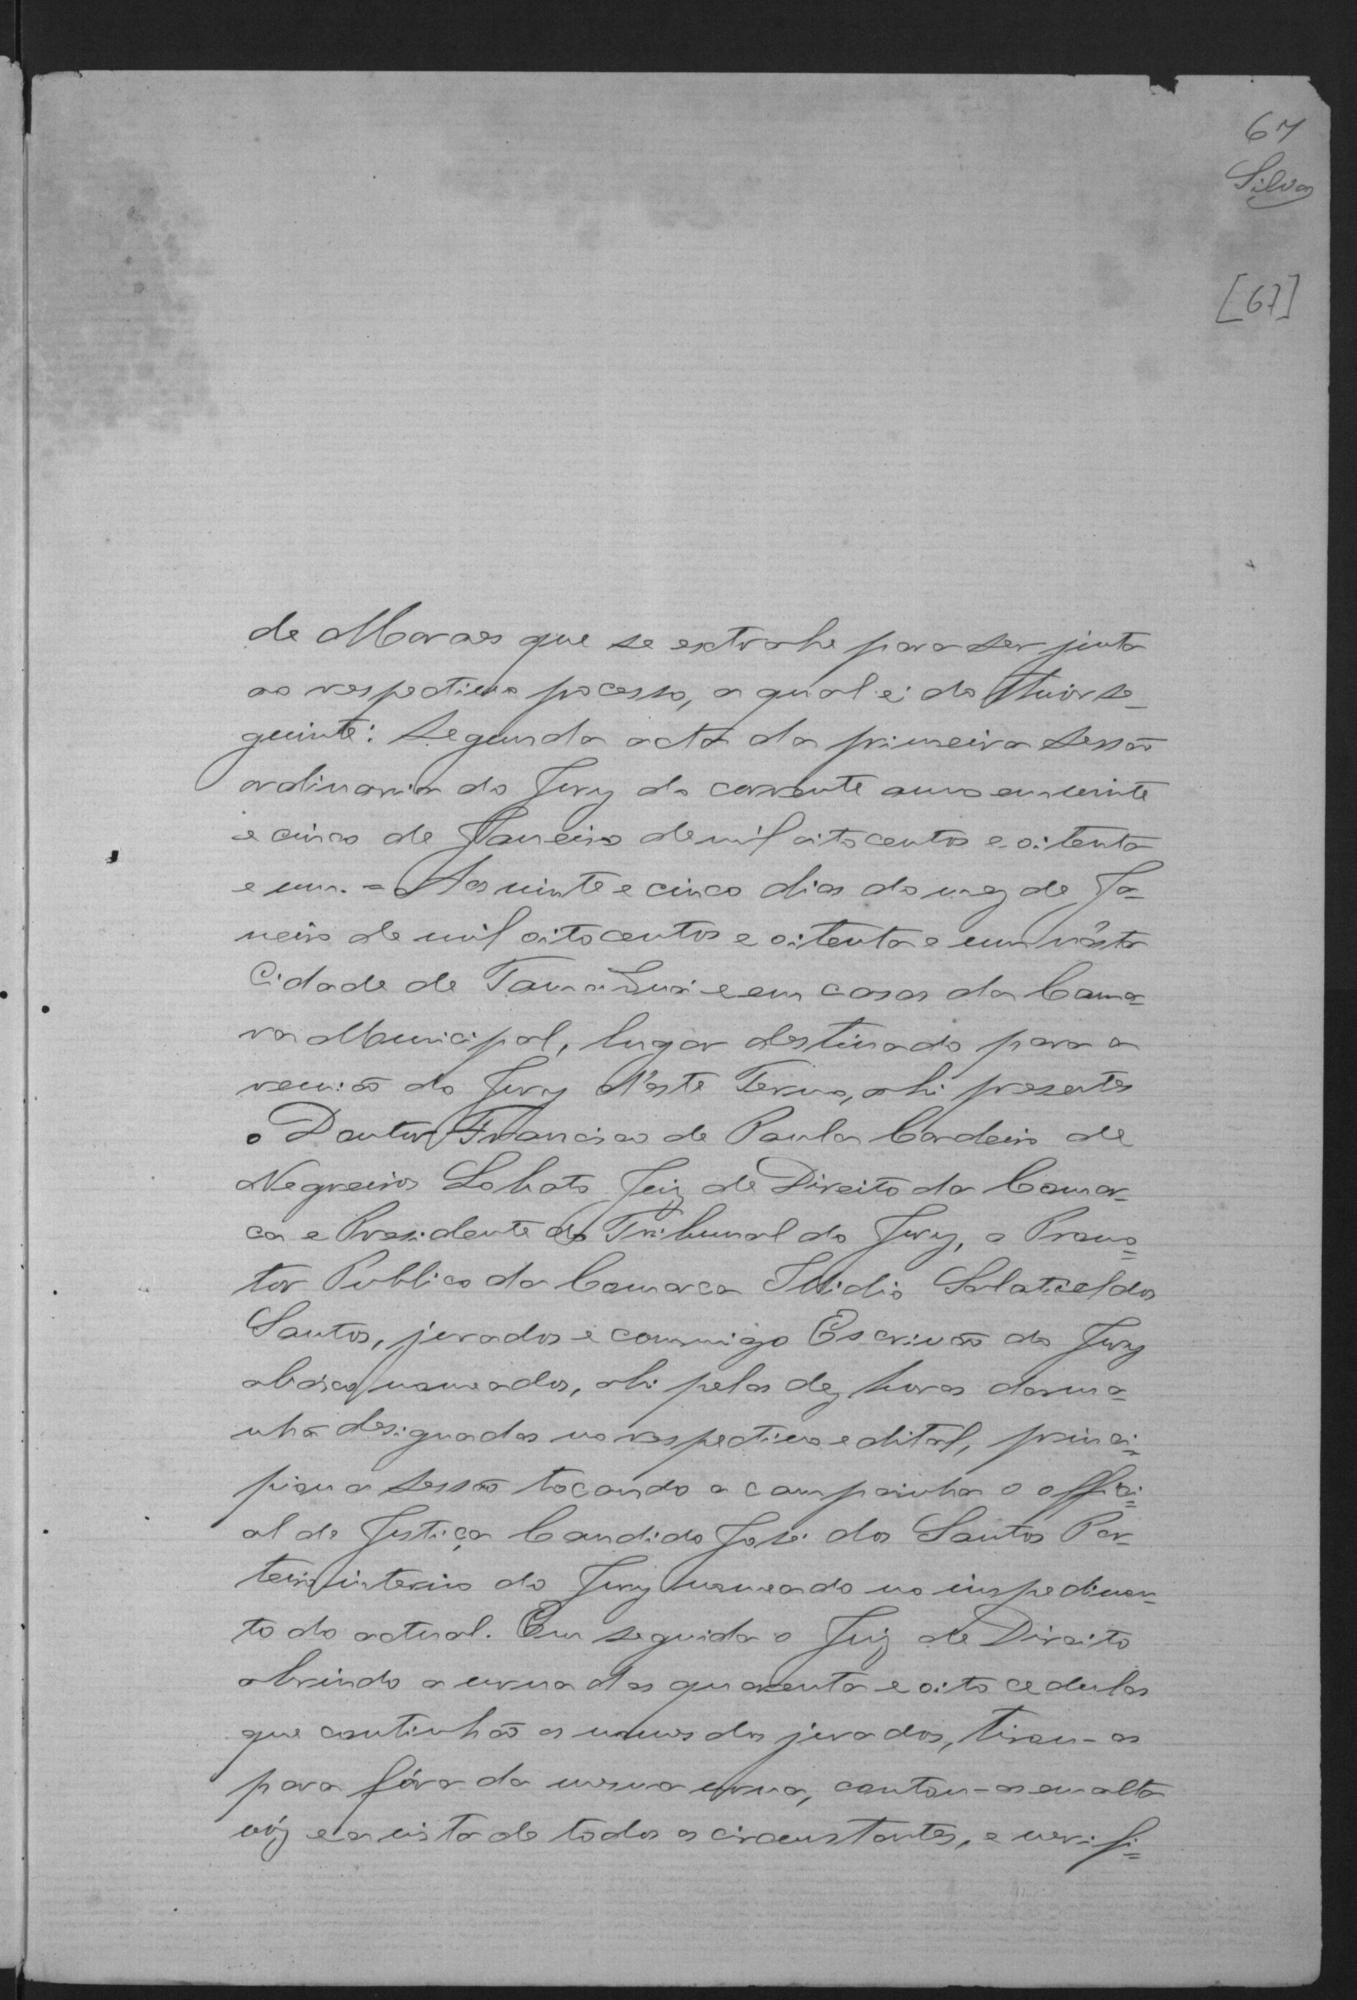 67
Silva
[67]
de Moraes que se extrahe para ser junta
ao respectivo pocesso, a qual é do theor se-
guinte: Segunda acta da primeira Sessão
ordinaria do Jury do corrente anno em vinte
e cinco de Janeiro de mil oito centos e oitenta
e um. = Aos vinte e cinco dias do mez de Ja=
neiro de mil oito centos e oitenta e um n'esta
Cidade de e em casas da Cama=
ra Municipal, lugar destinado para a
reunião do Jury n'este Termo, ahi presentes
o Doutor Francisco de Paula Cordeiro de
Negreiros Lobato Juiz de Direito da Comar=
ca e Presidente do Tribunal do Jury, o Promo=
tor Publico da Comarca Illidio Salatiel dos
Santos, jurados e commigo Escrivão do Jury
abaixo nomeados, ahi pelas dez horas da ma=
nhã designadas no respectivo edital, princi=
piou a Sessão tocando a campainha o offici=
al de Justiça Candido José dos Santos Por=
teiro interino do Jury nomeado no impedimen=
to do actual. Em seguida o Juiz de Direito
abrindo a urna das quarenta e oito cedulas
que continhão os nomes dos jurados, tirou-as
para fóra da mesma urna, contou-as em alta
vóz e a vista de todos os circunstantes, e verifi=